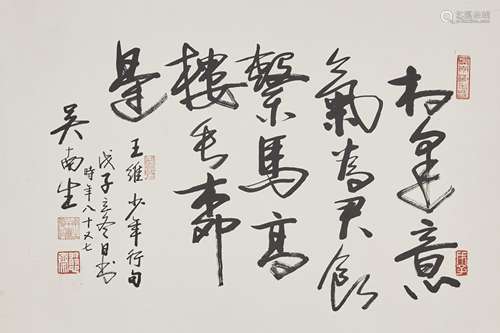 相逢意
氣為君飲
繫馬高
樓垂柳
邊
王維少年行句
戊子立冬日書
時年八十又七
吳南生